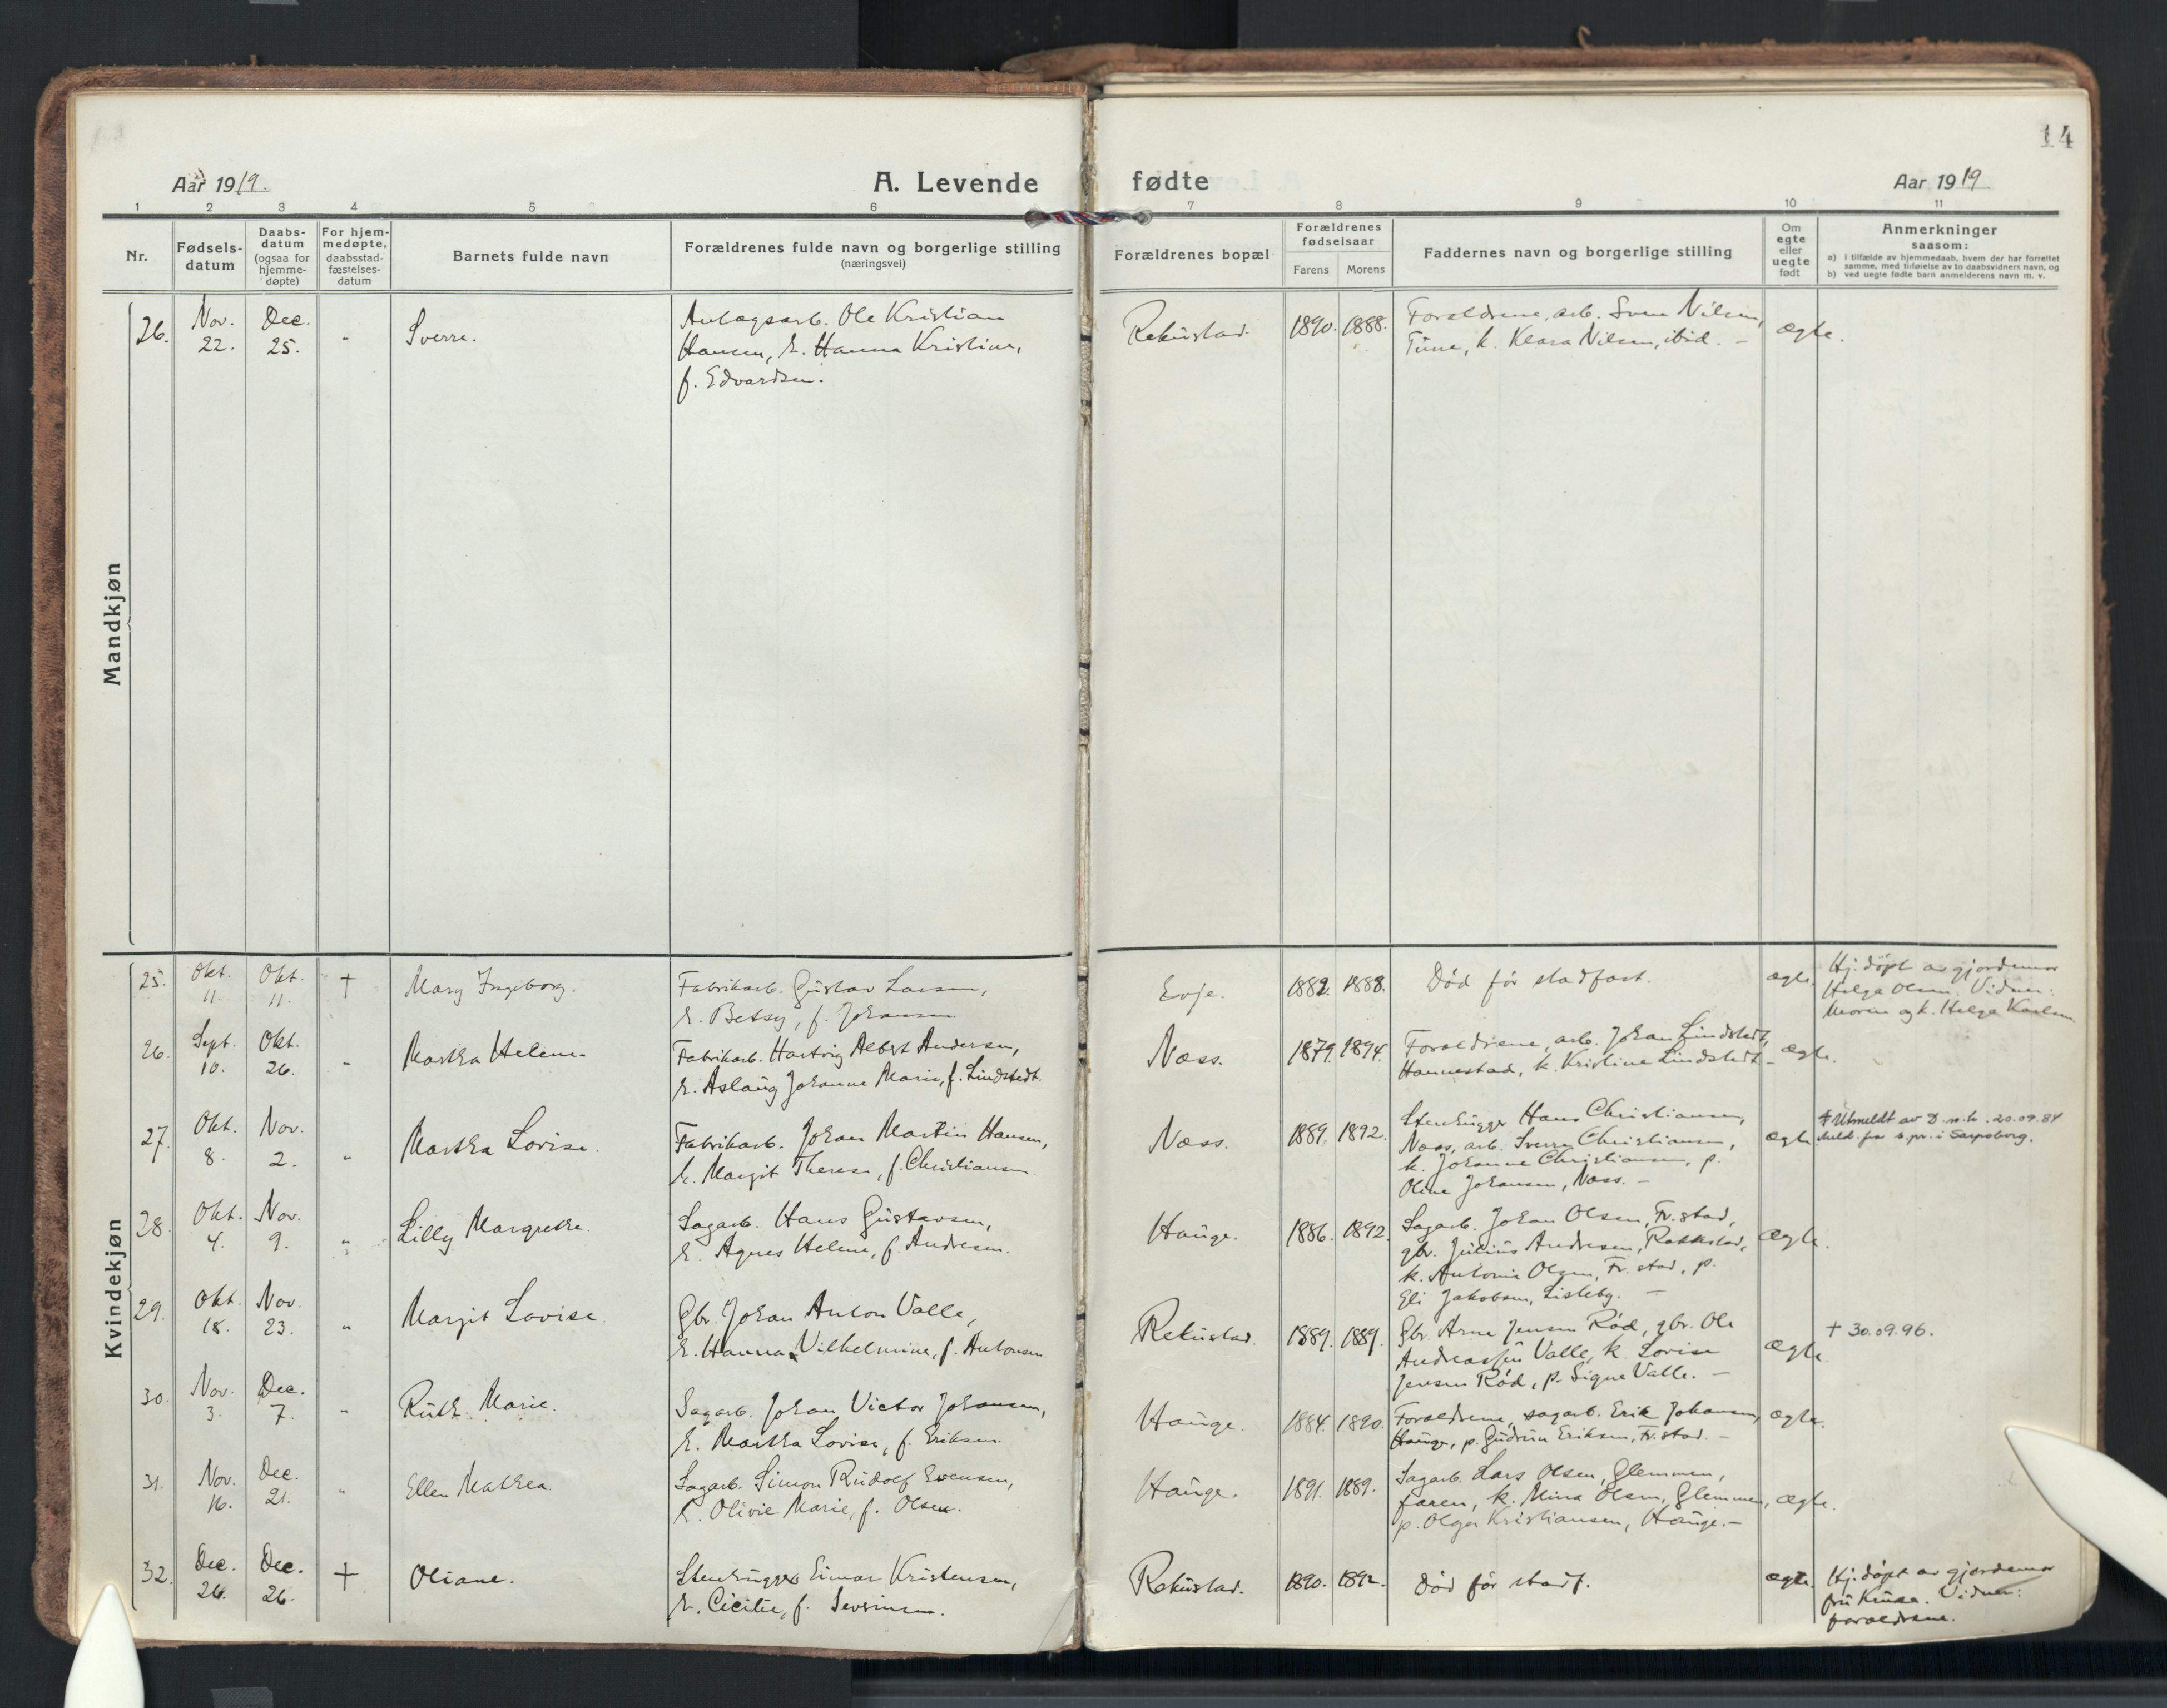 14
Aar 1919.
A. Levende fødte
Aar 1919
1 2 3 4 5 6 7 8 9 10 11
Nr.
Fødsels-
datum
Daabs-
datum
(ogsaa for
hjemme-
døpte)
For hjem-
medøpte,
daabsstad-
fæstelses-
datum
Barnets fulde navn
Forældrenes fulde navn og borgerlige stilling
(næringsvei)
Forældrenes bopæl
Forældrenes
fødselsaar
Farens Morens
Faddernes navn og borgerlige stilling
Om
egte
eller
uegte
født
Anmerkninger
saasom:
a) i tilfælde av hjemmedaab, hvem der har forrettet
samme, med tilføielse av to daabsvidners navn, og
b) ved uegte fødte barn anmelderens navn m. v.
Mandkjøn
26. Nov. 22. Dec. 25. - Sverre.
Anlægsarb. Ole Kristian
Hansen, h. Hanna Kristine,
f. Edvardsen.
Rekustad. 1890. 1888.
Forældrene, arb. Sven Nilsen,
Tune, k. Klara Nilsen, ibid. -
ægte.
Kvindekjøn
25. Okt. 11. Okt. 11. † Mary Ingeborg.
Fabrikarb. Gustav Larsen,
h. Betsy, f. Johansen
Evje. 1882. 1888.
Død før stadfæst.
ægte.
Hj. døpt av gjordemor
Helga Olsen. Vidner:
Moren og k. Helga Karlsen
26. Sept. 10. Okt. 26. - Martha Helene.
Fabrikarb. Hartvig Albert Andersen,
h. Aslaug Johanne Marie, f. Lindstedt.
Næss. 1879. 1894.
Forældrene, arb. Johan Lindstedt,
Hannestad, k. Kristine Lindstedt. -
ægte.
27. Okt. 8. Nov. 2. - Martha Lovise.
Fabrikarb. Johan Martin Hansen,
h. Margit Therese, f. Christiansen.
Næss. 1889. 1892.
Stenhugger Hans Christiansen,
Næss, arb. Sverre Christiansen,
k. Johanne Christiansen, p.
Oline Johansen, Næss. -
ægte
Utmeldt av D. n. k. 20.09.84
Meld. fra s.pr. i Sarpsborg.
28. Okt. 4. Nov. 9. - Lilly Margrethe.
Sagarb. Hans Gustavsen,
h. Agnes Helene, f. Andresen.
Hauge. 1886. 1892.
Sagarb. Johan Olsen, Fr.stad,
gbr. Julius Andresen, Rakkestad,
k. Antonie Olsen, Fr.stad, p.
Eli Jakobsen, Lisleby. -
ægte.
29. Okt. 18. Nov. 23. - Margit Lovise.
Gbr. Johan Anton Valle,
h. Hanna Vilhelmine, f. Antonsen
Rekustad. 1889. 1889.
Gbr. Arne Jensen Rød, gbr. Ole
Andreassen Valle, k. Lovise
Jensen Rød, p. Signe Valle. -
ægte.
† 30.09.96.
30. Nov. 3. Dec. 7. - Ruth Marie.
Sagarb. Johan Victor Johansen,
h. Martha Lovise, f. Eriksen.
Hauge. 1884. 1890.
Forældrene, sagarb. Erik Johansen,
Hauge, p. Gudrun Eriksen, Fr.stad. -
ægte.
31. Nov. 16. Dec. 21. - Ellen Mathea.
Sagarb. Simon Rudolf Evensen,
h. Olivie Marie, f. Olsen.
Hauge. 1891. 1889.
Sagarb. Lars Olsen, Glemmen,
faren, k. Mina Olsen, Glemmen,
p. Olga Kristiansen, Hauge. -
ægte.
32. Dec. 26. Dec. 26. † Oliane.
Stenhugger Einar Kristensen,
h. Cicilie, f. Sevrinsen.
Rekustad. 1890. 1892.
Død før stadf.
ægte.
Hj. døpt av gjordemor
fru Kruse. Vidner:
forældrene.